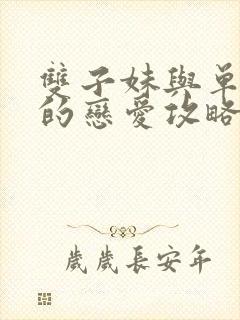 雙子妹與單
的戀愛攻略
歲歲長安年